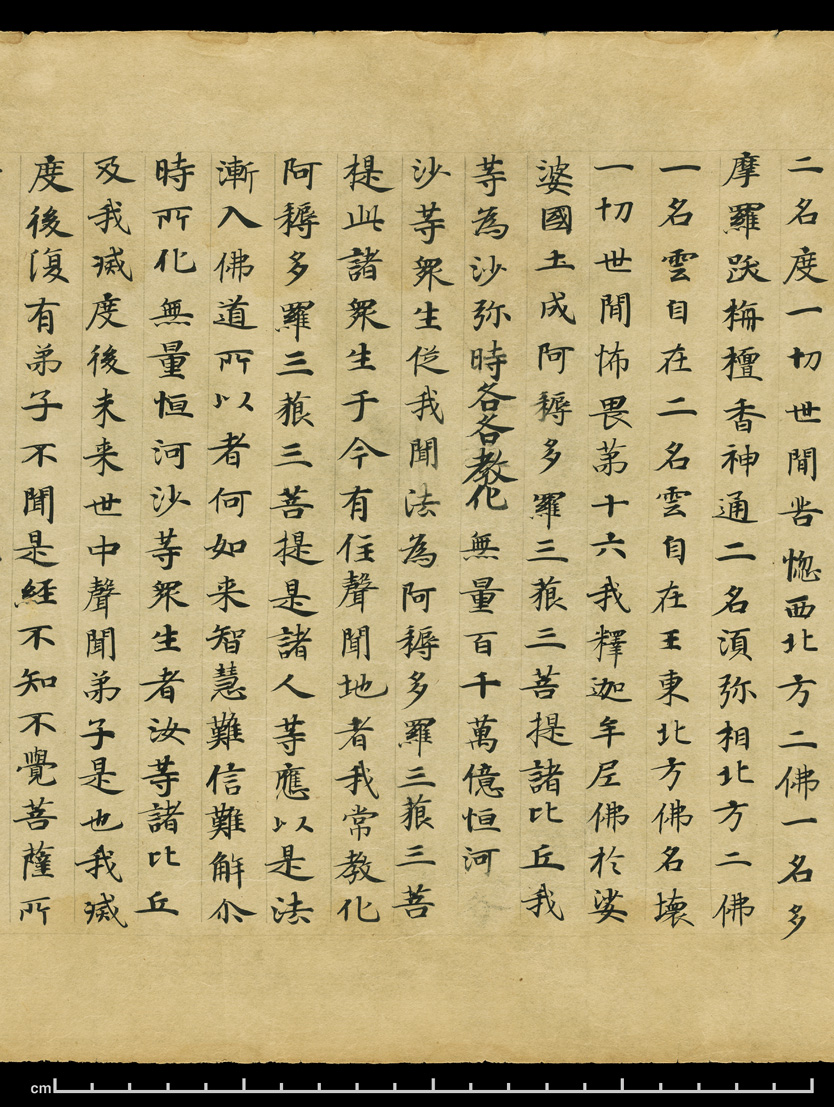 二名度一切世間苦惱西北方二佛一名多
摩羅跋栴檀香神通二名須弥相北方二佛
一名雲自在二名雲自在王東北方佛名壞
一切世間怖畏第十六我釋迦牟尼佛於娑
婆國土成阿耨多羅三藐三菩提諸比丘我
等為沙弥時各各教化無量百千萬億恒河
沙等衆生從我聞法為阿耨多羅三藐三菩
提此諸衆生于今有住聲聞地者我常教化
阿耨多羅三藐三菩提是諸人等應以是法
漸入佛道所以者何如来智慧難信難解尒
時所化無量恒河沙等衆生者汝等諸比丘
及我滅度後未来世中聲聞弟子是也我滅
度後復有弟子不聞是經不知不覺菩薩所
cm